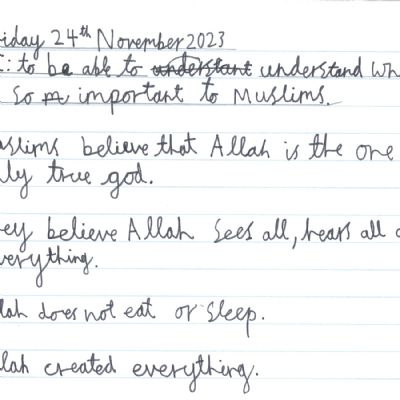 riday 24th November 2023
I: to be able to understant understand wh
so m important to Muslims.
uslims believe that Allah is the one
ly true god.
ey believe Allah sees all, hears all
verything.
lah does not eat or sleep.
lah created everything.